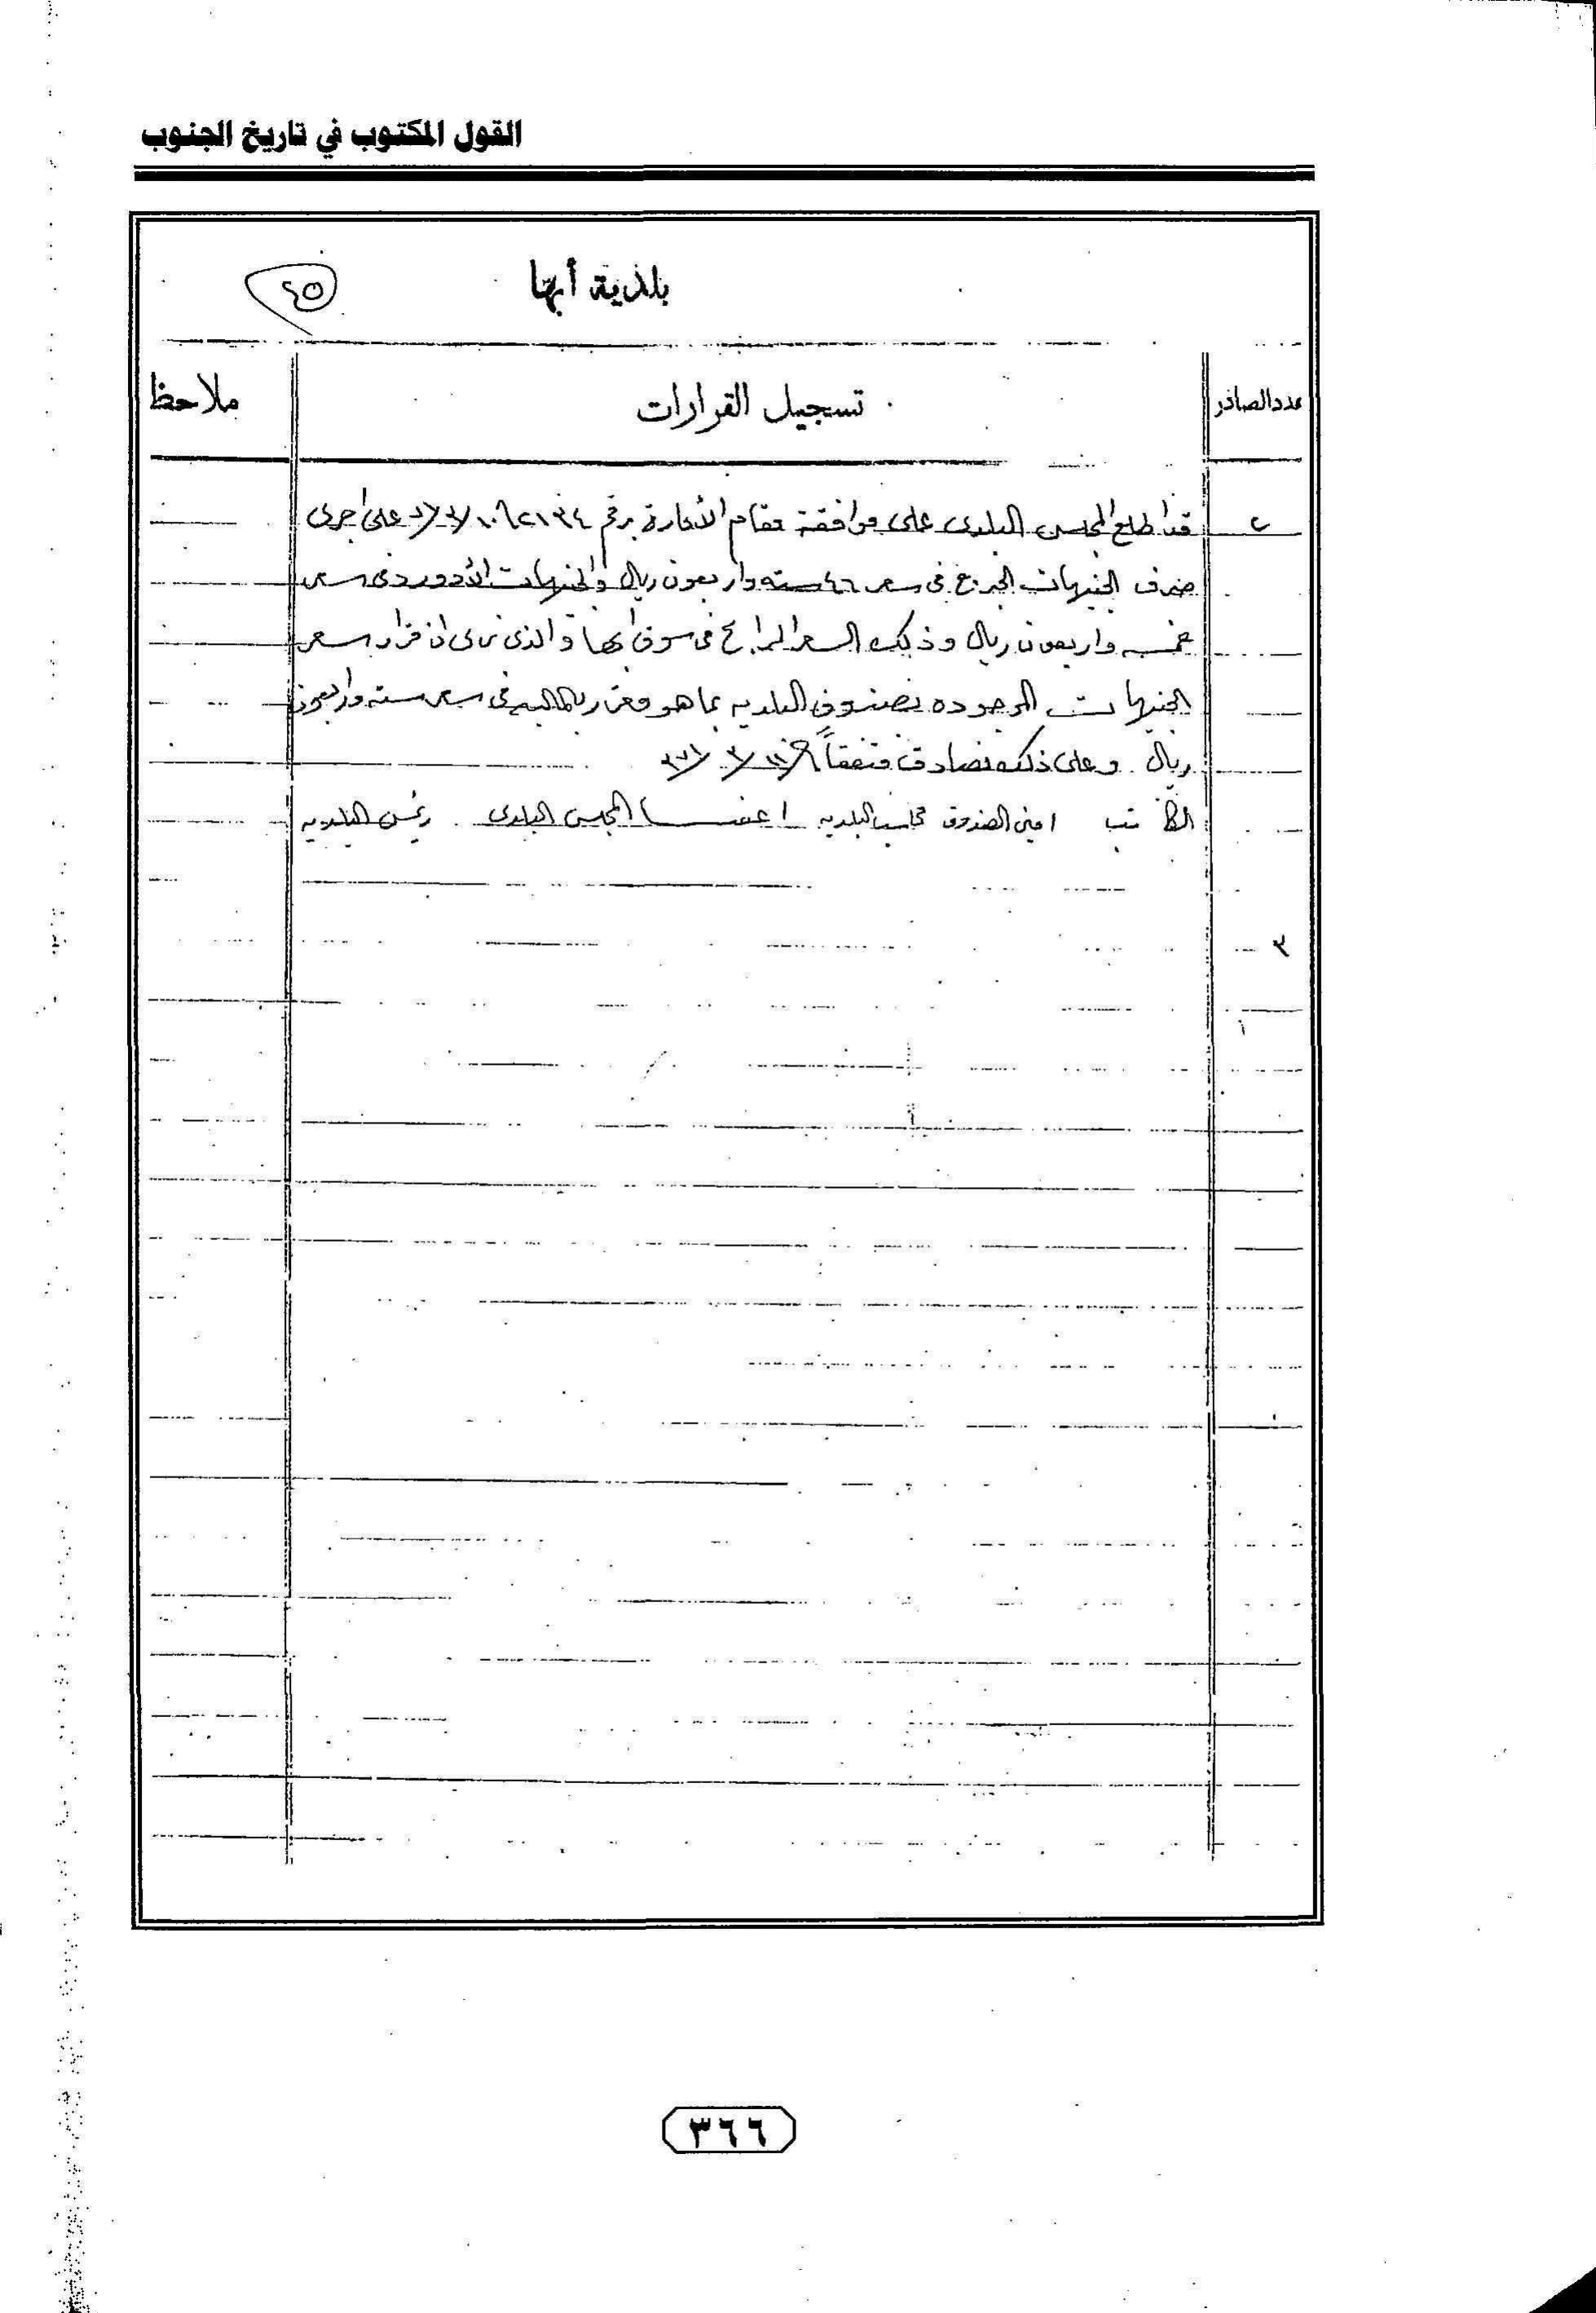 القول المكتوب في تاريخ الجنوب
بلدية أبها
٢٥
عدد الصادر
تسجيل القرارات
ملاحظا
٢
قد اطلع المجلس البلدى على موافقة مقام الأمارة برقم على اجرى
صرف الجنيهات الجورج فى سعر ٤٦ سته واربعون ريال والجنيهات الأدوردى سعر
خمسه واربعون ريال وذلك السعر الرابح فى سوق ابها والذى نرى ان قرار سعر
الجنيهات الموجوده بصندوق البلديه بما هو مقرر بالماليه فى سعر سته واربعون
ريال وعلى ذلك نصادق
الكاتب امين الصندوق محاسب البلديه اعضا المجلس البلدى رئيس البلديه
٣
٣٦٦